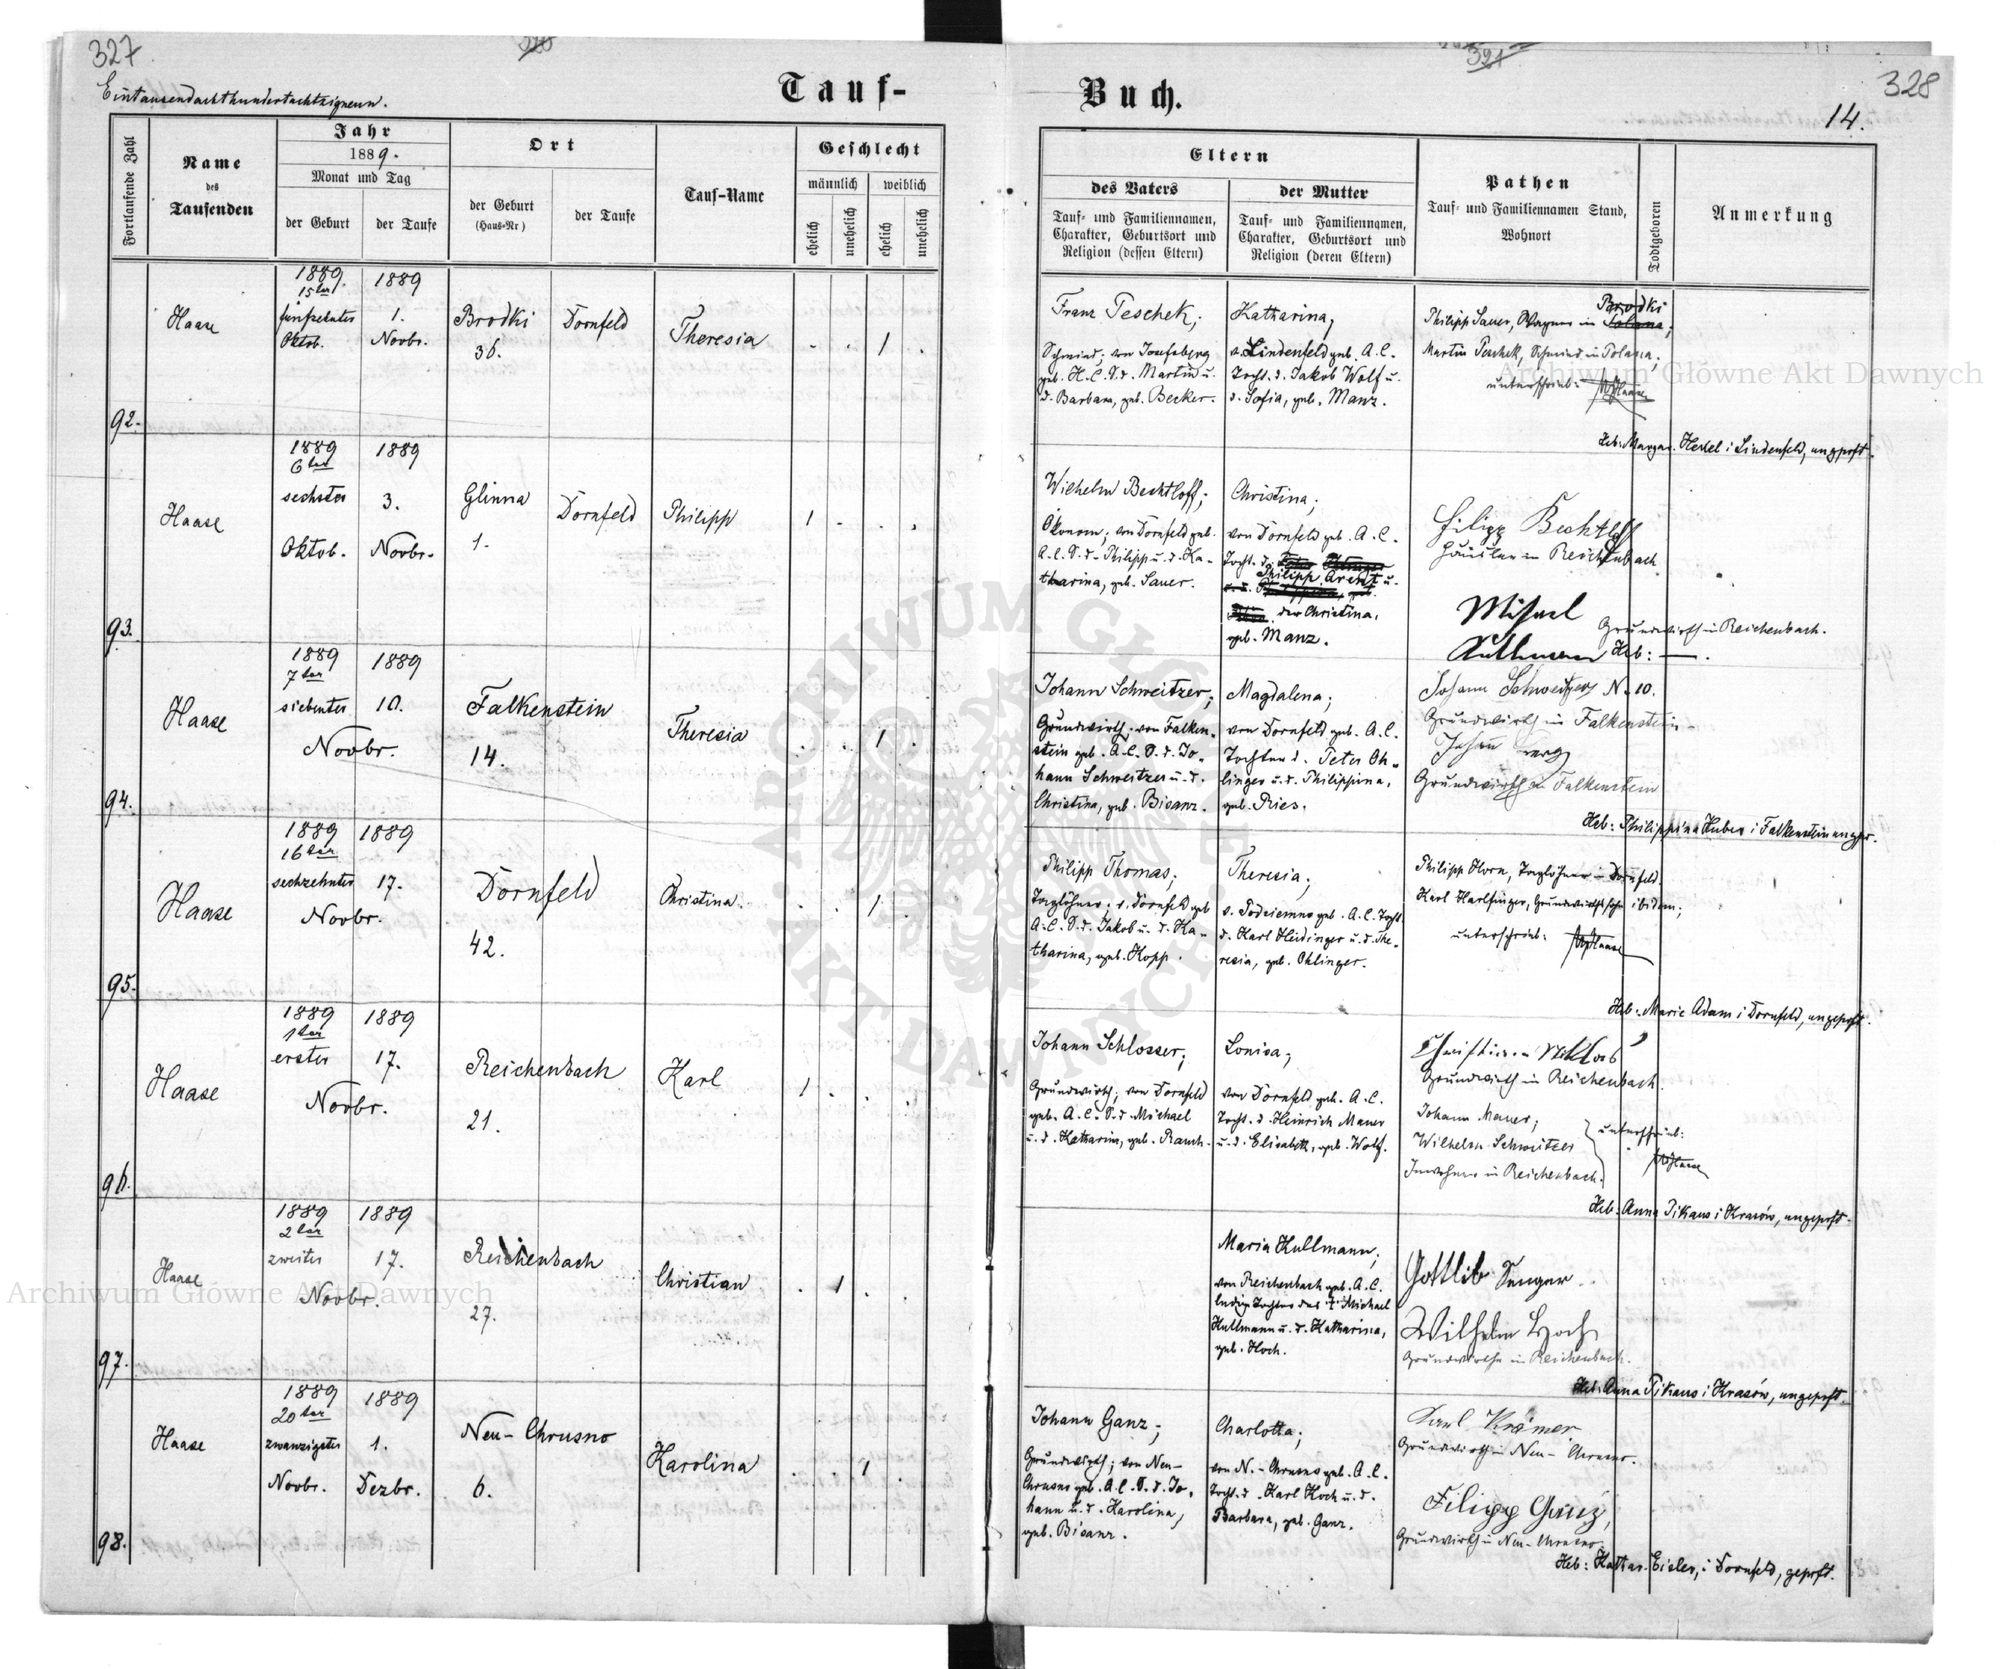 327
328
14.
Eintausendachthundertachtzigneun.
Tauf-
Buch.
Fortlaufende Zahl
Name
des
Taufenden
Jahr
1889.
Monat und Tag
der Geburt
der Taufe
Ort
der Geburt
(Haus-Nr)
der Taufe
Tauf-Name
Geschlecht
männlich
weiblich
ehelich
unehelich
ehelich
unehelich
Eltern
des Vaters
Tauf- und Familiennamen,
Charakter, Geburtsort und
Religion (dessen Eltern)
der Mutter
Tauf- und Familiennamen,
Charakter, Geburtsort und
Religion (deren Eltern)
Pathen
Tauf- und Familiennamen Stand,
Wohnort
Todtgeboren
Anmerkung
92.
Haase
1889.
15ter
fünfzehnter
Oktob.
1889
1.
Novbr.
Brodki
36.
Dornfeld
Theresia
1
Franz Peschek;
Schmied; von Josefsberg
geb. H.C. S.d. Martin u.
d. Barbara, geb. Becker.
Katharina;
v. Lindenfeld geb. A.C.
Tocht. d. Jakob Wolf u.
d. Sofia, geb. Manz.
Brodki
Philipp Sauer, Wagner in
Martin Peschek, Schmied in Polana;
unterschrieb: Haase
Heb: Margar. Hexel i Lindenfeld, ungeprft.
93.
Haase
1889
6ter
sechster
Oktob.
1889
3.
Novbr.
Glinna
1.
Dornfeld
Philipp
1
Wilhelm Bechtloff;
Ökonom; von Dornfeld geb.
A.C. S.d. Philipp u. d. Ka-
tharina, geb. Sauer.
Christina;
von Dornfeld geb. A.C.
Tocht. d.
Philipp Arendt u.
der Christina,
geb. Manz.
Filipp Bechtloff
Häusler in Reichenbach
Michael
Kullmann
Grundwirth in Reichenbach.
Heb: —.
94.
Haase
1889
7ter
siebenter
1889
10.
Novbr.
Falkenstein
14.
Theresia
1
Johann Schweitzer;
Grundwirth; von Falken-
stein geb. A.C. S.d. Jo-
hann Schweitzer u. d.
Christina, geb. Bisanz.
Magdalena;
von Dornfeld geb. A.C.
Tochter d. Peter Oh-
linger u. d. Philippina,
geb. Ries.
Johann Schweitzer N. 10.
Grundwirth in Falkenstein
Johann
Grundwirth in Falkenstein
Heb: Philippina Huber i Falkenstein ungepr.
95.
Haase
1889
16ter
sechzehnter
1889
17.
Novbr.
Dornfeld
42.
Christina.
1
Philipp Thomas;
Taglöhner; v. Dornfeld geb
A.C. S.d. Jakob u. d. Ka-
tharina, geb. Kopp.
Theresia;
v. Podciemno geb. A.C. Tocht
d. Karl Heidinger u. d. The-
resia, geb. Ohlinger.
Philipp Horn, Taglöhner in Dornfeld.
Karl Harlfinger, Grundwirthssohn ibidem;
unterschrieb: Haase
Heb: Marie Adam i Dornfeld, ungeprft.
96.
Haase
1889
1ter
erster
1889
17.
Novbr.
Reichenbach
21.
Karl
1
Johann Schlosser;
Grundwirth; von Dornfeld
geb. A.C. S.d. Michael
u. d. Katharina, geb. Rauch.
Louisa;
von Dornfeld geb. A.C.
Tocht. d. Heinrich Mauer
u. d. Elisabeth, geb. Wolf.
Christian Niklas
Grundwirth in Reichenbach.
Johann Mauer;
Wilhelm Schweitzer
Inwohner in Reichenbach.
unterschrieb:
Haase
Heb: Anna Pikaus i Krasów, ungeprft.
97.
Haase
1889
2ter
zweiter
1889
17.
Novbr.
Reichenbach
27.
Christian
1
Maria Kullmann;
von Reichenbach geb. A.C.
ledige Tochter des † Michael
Kullmann u. d. Katharina,
geb. Hoch.
Gottlieb Senger
Wilhelm Hoch
Grundwirthe in Reichenbach.
Heb: Anna Pikaus i Krasów, ungeprft.
98.
Haase
1889
20ter
zwanzigster
Novbr.
1889
1.
Dezbr.
Neu-Chrusno
6.
Karolina
1
Johann Ganz;
Grundwirth; von Neu-
Chrusno geb. A.C. S.d. Jo-
hann u. d. Karolina,
geb. Bisanz.
Charlotta;
von N.-Chrusno geb. A.C.
Tocht. d. Karl Koch u. d.
Barbara, geb. Ganz.
Karl Krämer
Grundwirth in Neu-Chrusno.
Filipp Ganz,
Grundwirth in Neu-Chrusno.
Heb: Kathar. Eisler, i Dornfeld, geprft.
Archiwum Główne Akt Dawnych
Archiwum Główne Akt Dawnych
ARCHIWUM GŁÓWNE AKT DAWNYCH